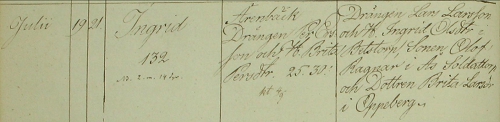 Julii 19 21 Ingrid
132
Arenbäck
Drängen Pr Ers
son och H. Brita
Persdtr. 25. 30.
Drängen Lars Larsson
och H. Ingrid Olsdtr i
Bitstorn Sonen Olof
Ragvar i Ås Soldaten
och Dottren Brita Larsdr
i Oppeberg